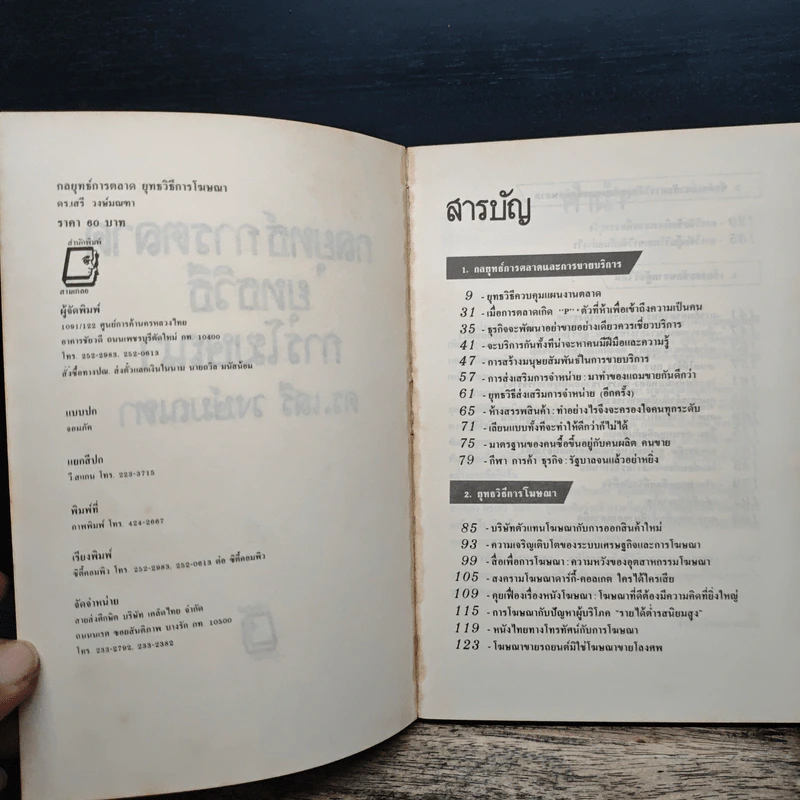 กลยุทธ์การตลาด ยุทธวิธีการโฆษณา
ดร.เสรี วงษ์มณฑา
ราคา 60 บาท
สำนักพิมพ์
สามเกลอ
ผู้จัดพิมพ์
1091/122 ศูนย์การค้านครหลวงไทย
อาคารชัยวดี ถนนเพชรบุรีตัดใหม่ กท. 10400
โทร. 252-2983, 252-0613
สั่งซื้อทางปณ. ส่งตั๋วแลกเงินในนาม นายถวัล มนัสน้อม
แบบปก
จอมภัค
แยกสีปก
วี.สแกน โทร. 223-3715
พิมพ์ที่
ภาพพิมพ์ โทร. 424-2667
เรียงพิมพ์
ซิตี้คอมพิว โทร. 252-2983, 252-0613 ต่อ ซิตี้คอมพิว
จัดจำหน่าย
สายส่งศึกษิต บริษัท เคล็ดไทย จำกัด
ถนนนเรศ ซอยสันติภาพ บางรัก กท. 10500
โทร. 233-2792, 233-2382
สารบัญ
1. กลยุทธ์การตลาดและการขายบริการ
9 - ยุทธวิธีควบคุมแผนงานตลาด
31 - เมื่อการตลาดเกิด "P" ตัวที่ห้าเพื่อเข้าถึงความเป็นคน
35 - ธุรกิจจะพัฒนาอย่าขายอย่างเดียวควรเชี่ยวบริการ
41 - จะบริการกันทั้งทีน่าจะหาคนมีฝีมือและความรู้
47 - การสร้างมนุษยสัมพันธ์ในการขายบริการ
57 - การส่งเสริมการจำหน่าย : มาทำของแถมขายกันดีกว่า
61 - ยุทธวิธีส่งเสริมการจำหน่าย (อีกครั้ง)
65 - ห้างสรรพสินค้า : ทำอย่างไรจึงจะครองใจคนทุกระดับ
71 - เลียนแบบทั้งทีจะทำให้ดีกว่าก็ไม่ได้
75 - มาตรฐานของคนซื้อขึ้นอยู่กับคนผลิต คนขาย
79 - กีฬา การค้า ธุรกิจ : รัฐบาลจนแล้วอย่าหยิ่ง
2. ยุทธวิธีการโฆษณา
85 - บริษัทตัวแทนโฆษณากับการออกสินค้าใหม่
93 - ความเจริญเติบโตของระบบเศรษฐกิจและการโฆษณา
99 - สื่อเพื่อการโฆษณา : ความหวังของอุตสาหกรรมโฆษณา
105 - สงครามโฆษณาดาร์กี้-คอลเกต ใครได้ใครเสีย
109 - คุยเฟื่องเรื่องหนังโฆษณา : โฆษณาที่ดีต้องมีความคิดที่ยิ่งใหญ่
115 - การโฆษณากับปัญหาผู้บริโภค "รายได้ต่ำรสนิยมสูง"
119 - หนังไทยทางโทรทัศน์กับการโฆษณา
123 - โฆษณาขายรถยนต์มิใช่โฆษณาขายโลงศพ